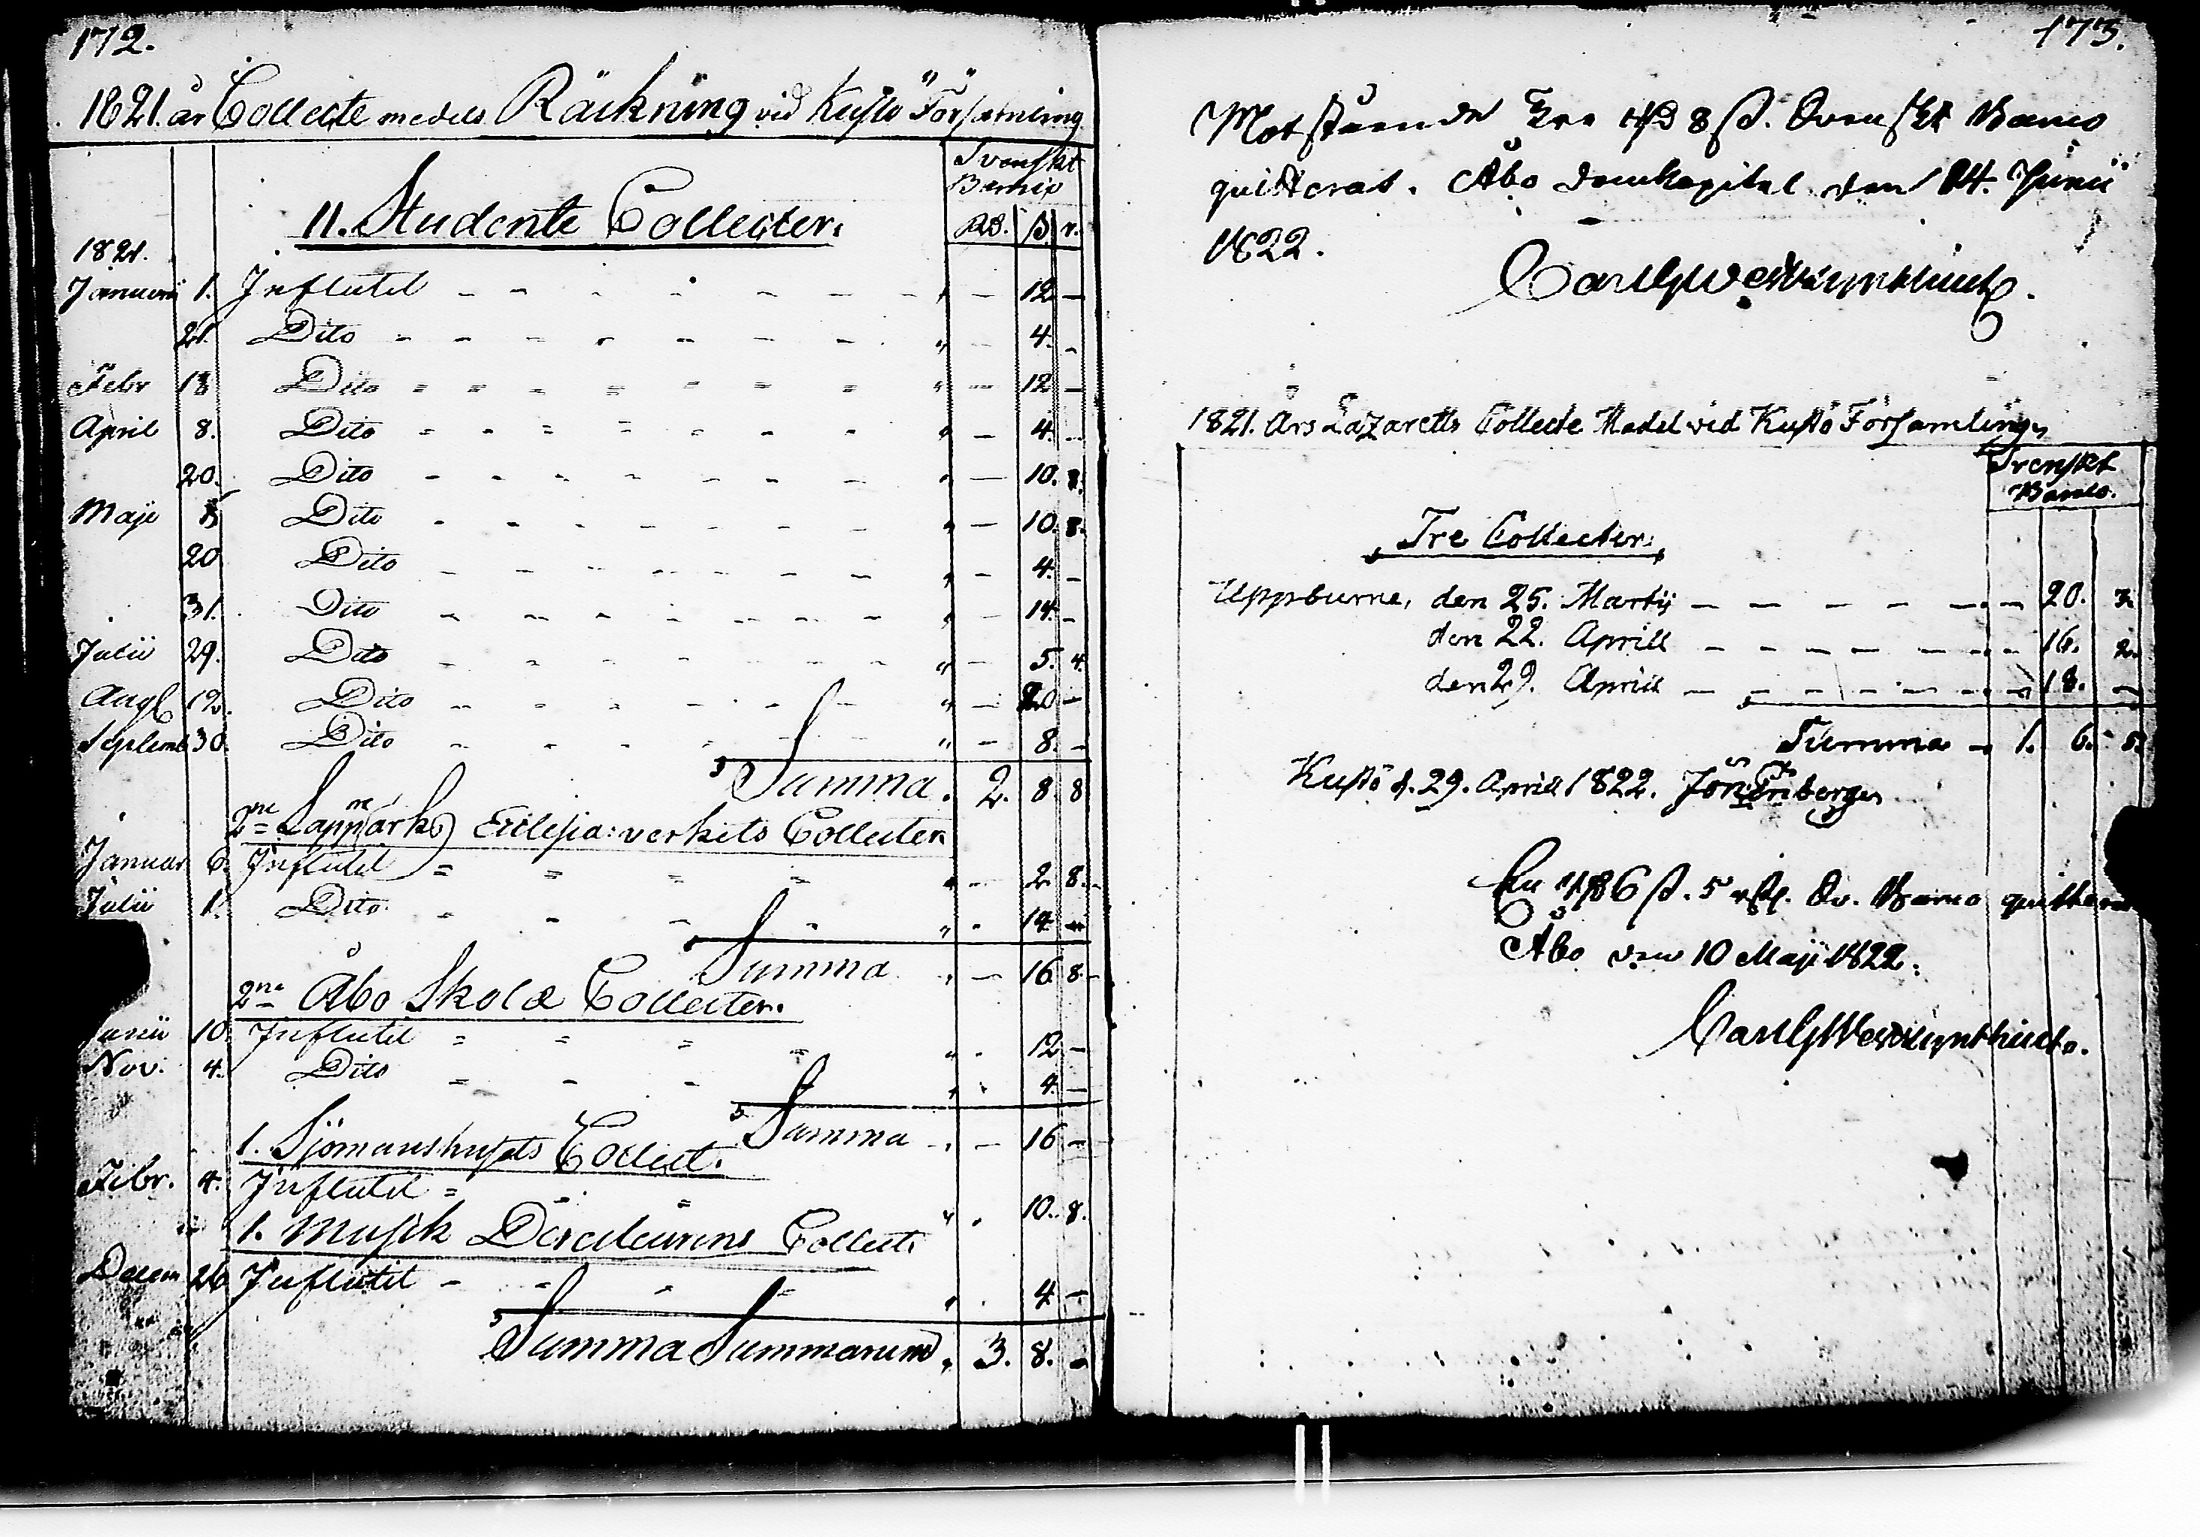 172.
1821. år Collecte medels Räckning vid Kustö Församling
Svenskt
Banco
11. Studente Collecter.
RD. ß. r.
1821.
Januarii 1. Influtit " — 12 —
21. Dito " — 4. —
Febr 18 Dito " — 12 —
April 8. Dito " — 4. —
20. Dito " — 10. 8.
Maji Dito " — 10. 8.
20 Dito " — 4. —
31. Dito — 14. —
Julii 29. Dito " — 5. 4.
Aug 19. Dito " — 20 —
Septemb 30. Dito " — 8. —
Summa. 2. 8 8
2ne Lappmarks Ecclesia:verkets Collecter
Januar 6. Influtit " — 2 8.
Julii 1. Dito " - 14 —
Summa " — 16 8
2ne Åbo Skole Collecter.
Junii 10. Influtit " - 12 —
Nov. 4. Dito " - 4. —
Summa " — 16 —
1. Sjömanshusets Collect.
Febr. 4. Influtit " - 10. 8.
1. Musik Directeurens Collect.
Decem 26 Influtit " - 4 —
Summa Summarum " 3. 8. —
173.
Motstående Tre RD 8 ß. Svenskt Banco
quitterat. Åbo Domkapitel den 24. Junii
1822.
1821. Års Lazaretts Collecte Medel vid Kustö Församling
Svenskt
Banco.
Tre Collecter.
Uppburne, den 25. Martij — 20. 3.
den 22. Aprill — 16. 2.
den 29. Aprill — 18. —
Summa — 1. 6. 5.
Kustö d. 29. Aprill 1822. Jon Enberg
En RD 6 ß. 5 rst. Sv. Banco quitterat
Åbo den 10 Maji 1822.